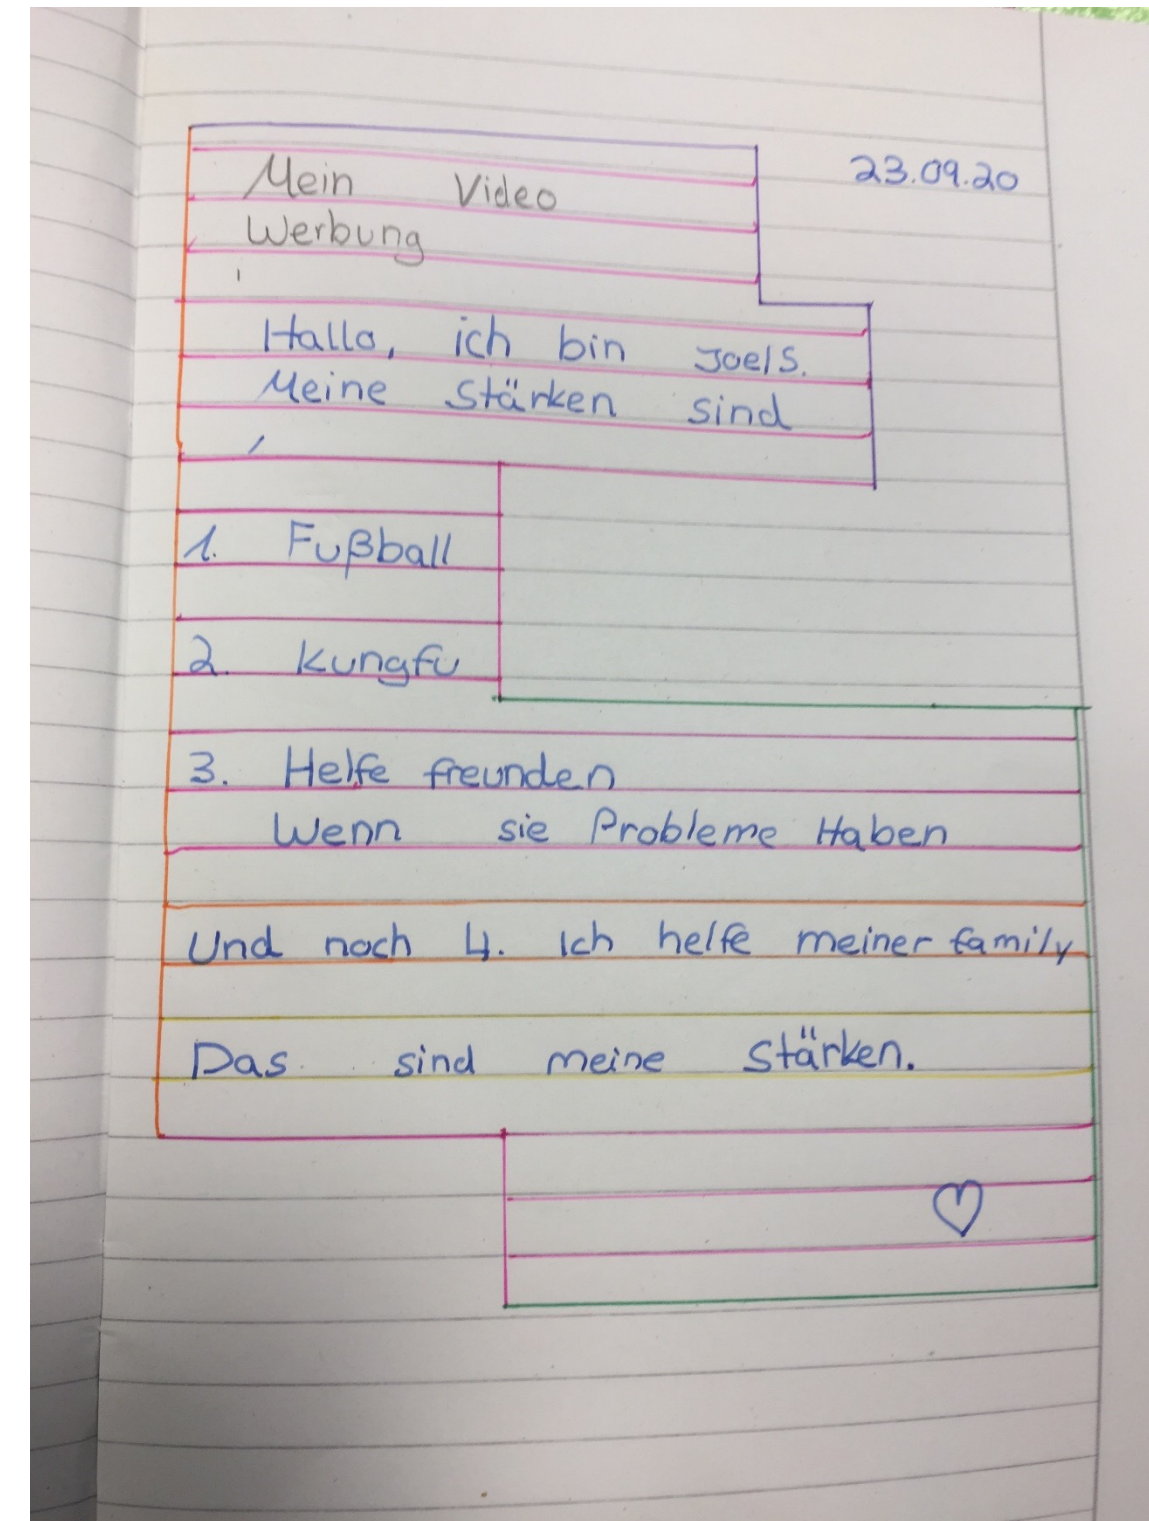 23.09.20
Mein Video
Werbung
Hallo, ich bin Joel S.
Meine Stärken sind
1. Fußball
2. Kungfu
3. Helfe freunden
Wenn sie Probleme Haben
Und noch 4. Ich helfe meiner family
Das sind meine Stärken.